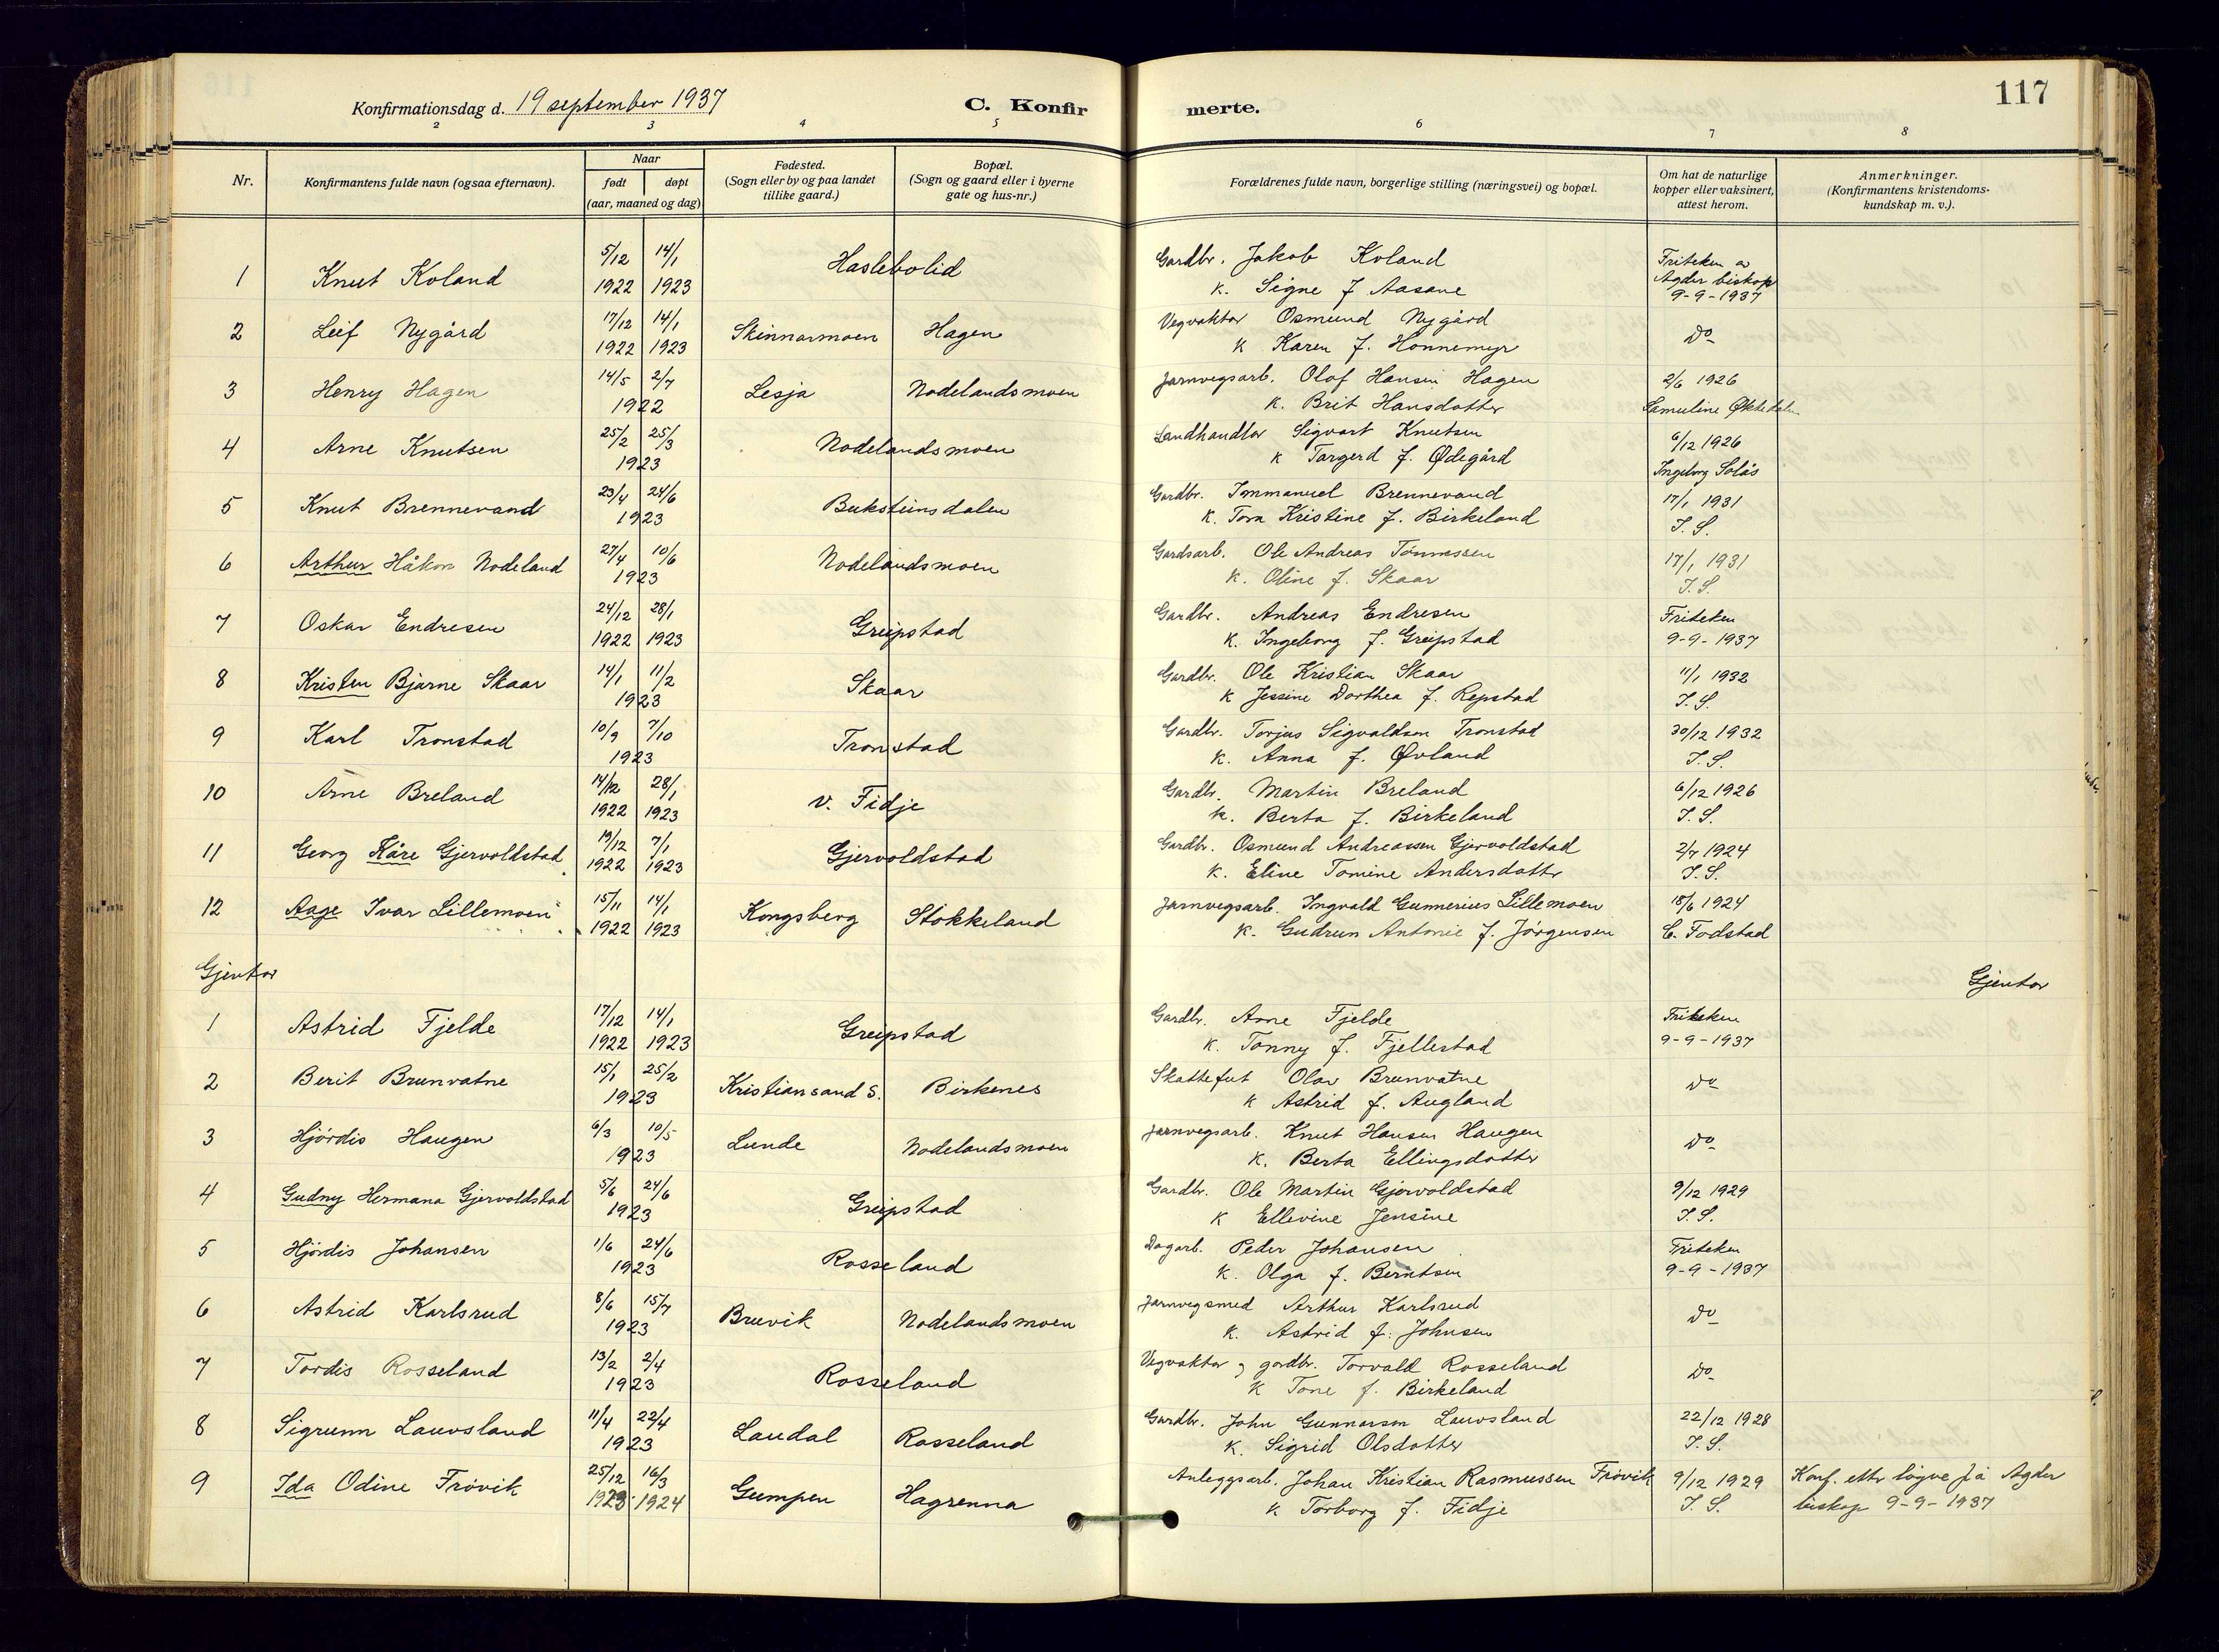 Konfirmationsdag d. 19 september 1937
C. Konfir
merte.
117
2 3 4 5 6 7 8
Nr.
Konfirmantens fulde navn (ogsaa efternavn).
Naar
født døpt
(aar, maaned og dag)
Fødested.
(Sogn eller by og paa landet
tillike gaard.)
Bopæl.
(Sogn og gaard eller i byerne
gate og hus-nr.)
Forældrenes fulde navn, borgerlige stilling (næringsvei) og bopæl.
Om hat de naturlige
kopper eller vaksinert,
attest herom.
Anmerkninger.
(Konfirmantens kristendoms-
kundskap m. v.).
1 Knut Koland 5/12 1922 14/1 1923 Haslebolid Gardbr. Jakob Koland
K. Signe f Aasane
Friteken av
Agder biskop
9-9-1937
2 Leif Nygård 17/12 1922 14/1 1923 Skinnarmoen Hagen Vegvaktar Osmund Nygård
K Karen f. Honnemyr
Do
3 Henry Hagen 14/5 2/7 1922 Lesja Nodelandsmoen Jarnvegsarb. Olof Hansen Hagen
K. Brit Hansdotter
2/6 1926
Samuline
4 Arne Knutsen 25/2 25/3 1923 Nodelandsmoen Landhandlar Sigvart Knutsen
K Targerd f. Ødegård
6/12 1926
Ingeborg Solås
5 Knut Brennevand 23/4 24/6 1923 Buksteinsdalen Gardbr. Immanuel Brennevand
K. Tora Kristine f. Birkeland
17/1 1931
I. S.
6 Arthur Håkon Nodeland 27/4 10/6 1923 Nodelandsmoen Gardsarb. Ole Andreas Tønnessen
K. Oline f. Skaar
17/1 1931
I. S.
7 Oskar Endresen 24/12 1922 28/1 1923 Greipstad Gardbr. Andreas Endresen
K. Ingeborg f. Greipstad
Friteken
9-9-1937
8 Kristen Bjarne Skaar 14/1 11/2 1923 Skaar Gardbr. Ole Kristian Skaar
K Jessine Dorthea f. Repstad
11/1 1932
I. S.
9 Karl Tronstad 10/9 7/10 1923 Tronstad Gardbr. Torjus Sigvaldsen Tronstad
K. Anna f. Øvland
30/12 1932
I. S.
10 Arne Breland 14/12 1922 28/1 1923 v. Fidje Gardbr. Martin Breland
K. Berta f. Birkeland
6/12 1926
I. S.
11 Georg Kåre Gjervoldstad 19/12 1922 7/1 1923 Gjervoldstad Gardbr. Osmund Andreassen Gjervoldstad
K. Eline Tomine Andersdotter
2/7 1924
I. S.
12 Aage Ivar Lillemoen 15/11 1922 14/1 1923 Kongsberg Stokkeland Jarnvegsarb. Ingvald Gunnerius Lillemoen
K. Gudrun Antonie f. Jørgensen
18/6 1924
C. Todstad
Gjentor
Gjentor
1 Astrid Fjelde 17/12 1922 14/1 1923 Greipstad Gardbr. Arne Fjelde
K. Tonny f. Fjellestad
Friteken
9-9-1937
2 Berit Brunvatne 15/1 25/2 1923 Kristiansand S. Birkenes Skattefut Olav Brunvatne
K Astrid f. Augland
Do
3 Hjørdis Haugen 6/3 10/5 1923 Lunde Nodelandsmoen Jarnvegsarb. Knut Hansen Haugen
K. Berta Ellingsdotter
Do
4 Gudny Hermana Gjervoldstad 5/6 24/6 1923 Greipstad Gardbr. Ole Martin Gjervoldstad
K Ellevine Jensine
9/12 1929
I. S.
5 Hjørdis Johansen 1/6 24/6 1923 Rosseland Dagarb. Peder Johansen
K. Olga f. Berntsen
Friteken
9-9-1937
6 Astrid Karlsrud 8/6 15/7 1923 Bruvik Nodelandsmoen Jarnvegsmed Arthur Karlsrud
K. Astrid f. Johnsen
Do
7 Tordis Rosseland 13/2 2/4 1923 Rosseland Vegvaktar og gardbr. Torvald Rosseland
K Tone f. Birkeland
Do
8 Sigrunn Lauvsland 11/4 22/4 1923 Laudal Rosseland Gardbr. John Gunnarsen Lauvsland
K. Sigrid Olsdotter
22/12 1928
I. S.
9 Ida Odine Frøvik 25/12 1923 16/3 1924 Gumpen Hagrenna Anleggsarb. Johan Kristian Rasmussen Frøvik
K Torborg f. Fidje
9/12 1929
I. S.
Konf. etter løyve frå Agder
biskop 9-9-1937